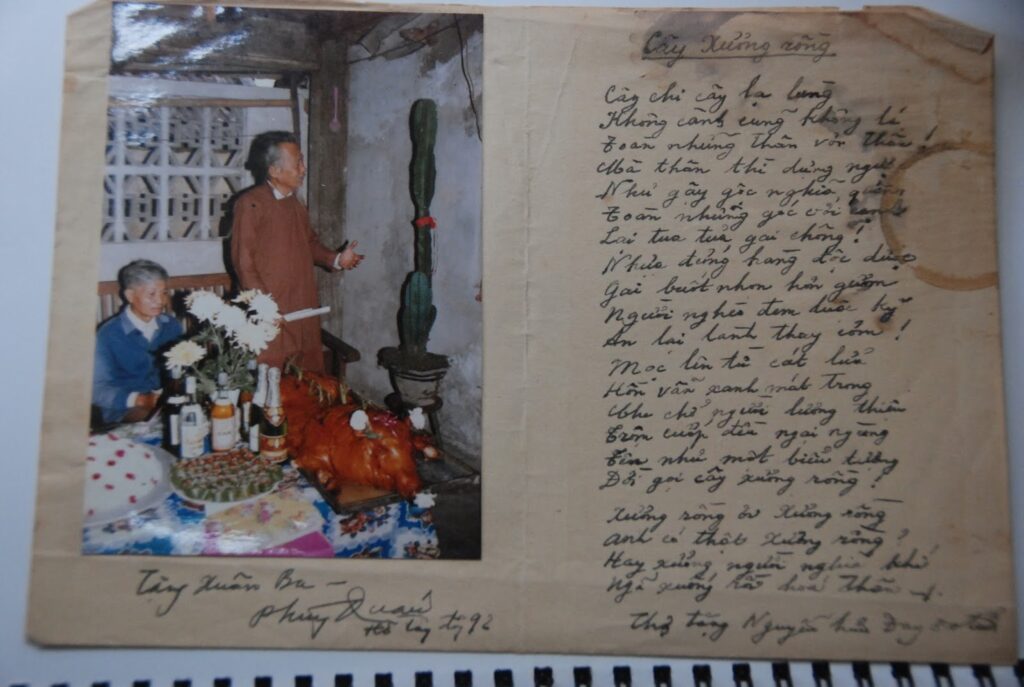 Cây xương rồng
Cây chi cây lạ lùng
Không cành cụng không lá
Toàn những thân với thân!
Mà thân thì dựng ngược
Như gậy gộc nghĩa quân
Toàn những góc với cạnh
Lại tua tủa gai chông!
Nhựa đựng hàng độc dược
Gai buốt nhọn hơn gươm
Người nghèo đem luộc kỹ
Ăn lại lành thay cơm!
Mọc lên từ cát lửa
Hồn vẫn xanh mát trong
Che chở người lương thiện
Trộm cướp đều ngại ngùng
Tên như một biểu tượng
Đời gọi cây xương rồng!
Xương rồng ơi xương rồng
Anh có thật xương rồng?
Hay xương người nghĩa khí
Ngã xuống rồi hoá thân
Thơ tặng Nguyễn hữu Đang 80 tuổi
Tặng Xuân Ba -
Phùng Quán
Hồ Tây